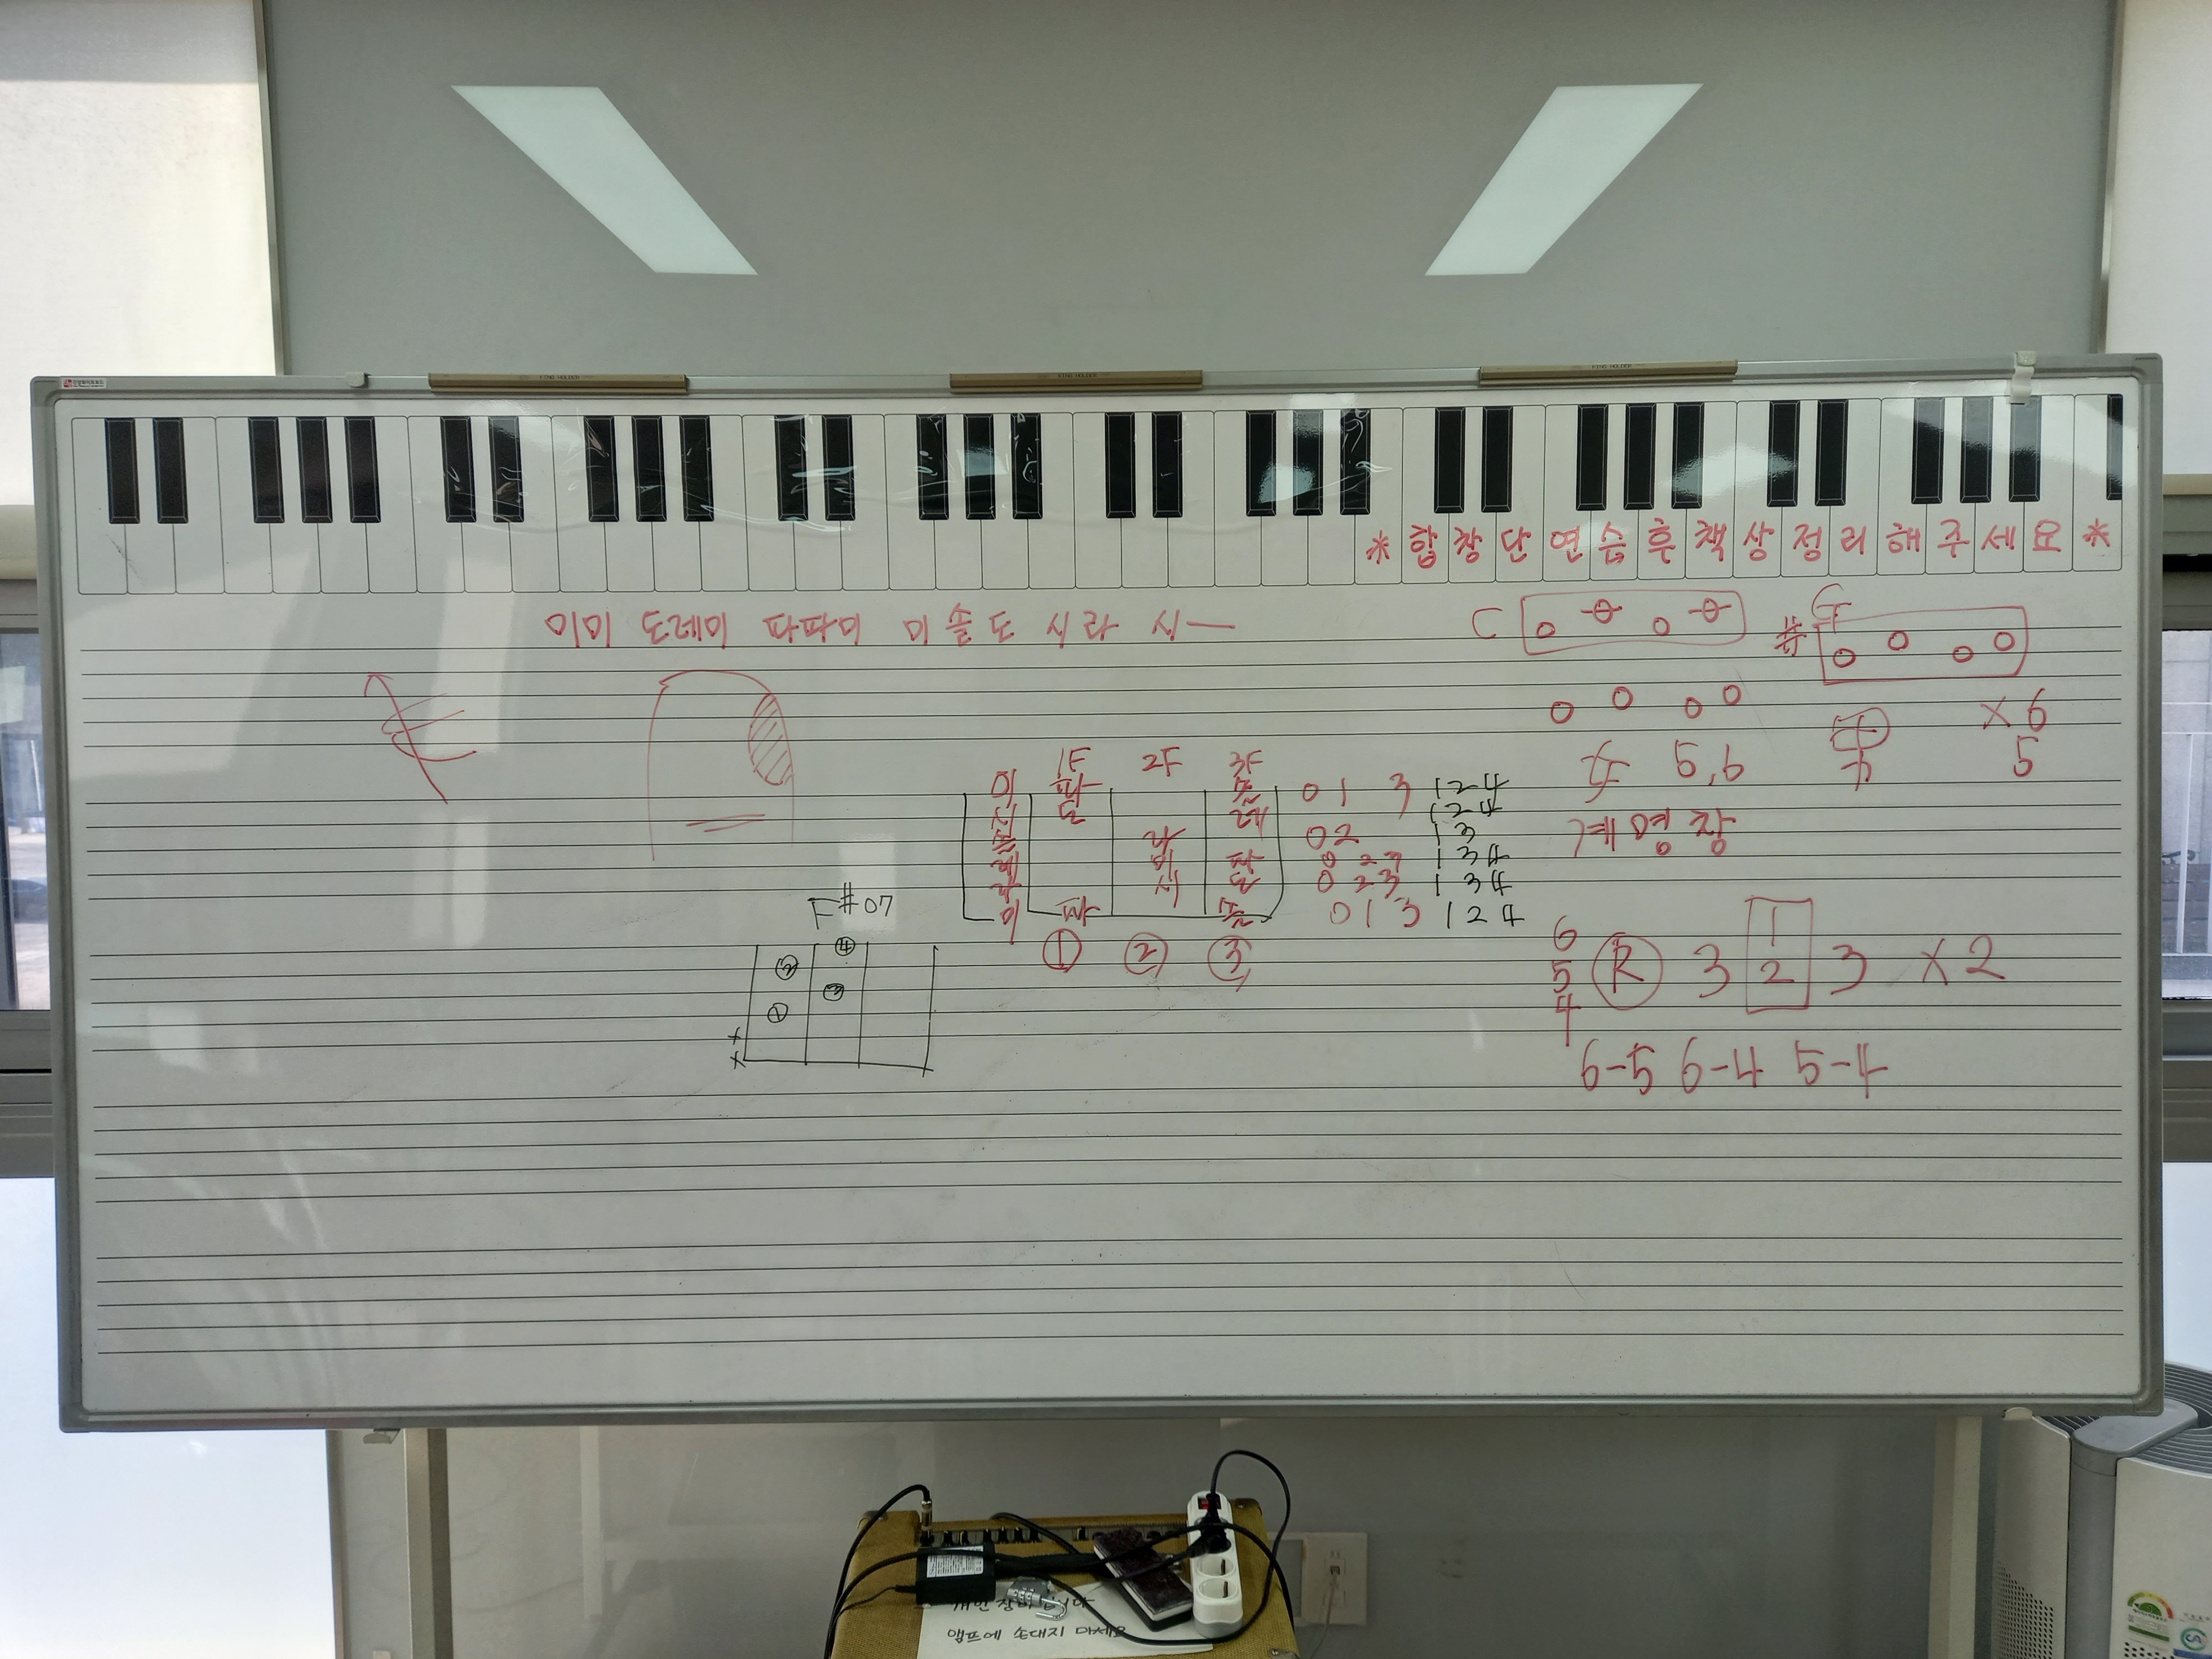 KING HOLDER KING HOLDER KING HOLDER
* 합창단 연습후 책상정리해주세요 *
미미 도레미 파파미 미솔도 시라 시—
C
# G
x 6
5
5, 6
계명창
1F 2F 3F
미 파 솔 0 1 3 1 2 4
시 도 레 1 2 4
솔 라 0 2 1 3
레 미 파 0 2 3 1 3 4
라 시 도 0 2 3 1 3 4
미 파 솔 0 1 3 1 2 4
① ② ③
F#07
④
②
③
①
x
x
6 1
5 R 3 2 3 x 2
4
6-5 6-4 5-4
개인 장비 입니다
앰프에 손대지 마세요